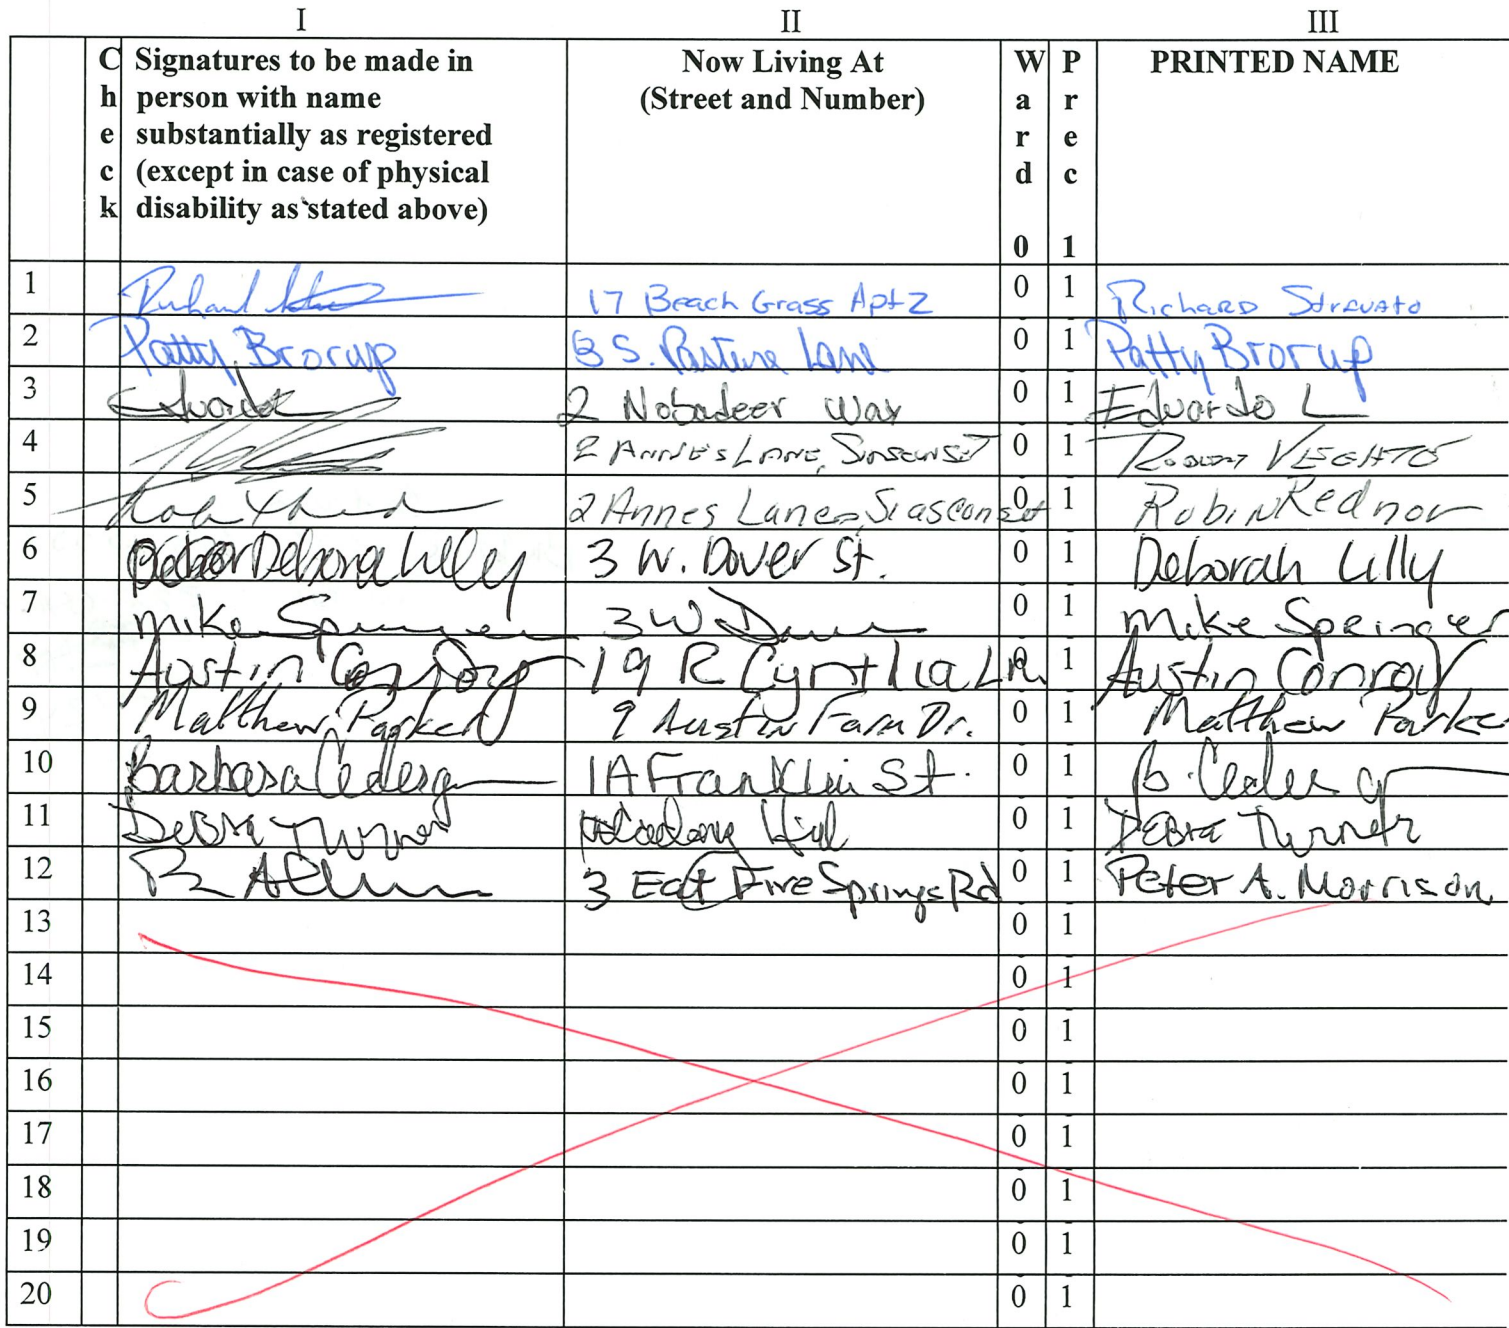 I II III
Check Signatures to be made in person with name substantially as registered (except in case of physical disability as stated above) Now Living At (Street and Number) Ward 0 Prec 1 PRINTED NAME
1 Richard 17 Beach Grass Apt 2 0 1 Richard
2 Patty Brorup 8 S. Pasture Lane 0 1 Patty Brorup
3 Eduardo 2 Nobadeer Way 0 1 Eduardo L
4 2 Anne's Lane, Siasconset 0 1 Robert
5 2 Annes Lane, Siasconset 0 1 Robin Rednor
6 Deborah Lilly 3 W. Dover St. 0 1 Deborah Lilly
7 Mike Springer 3 W Dover 0 1 Mike Springer
8 Austin Conroy 19 R Cynthia Ln. 0 1 Austin Conroy
9 Matthew Parker 9 Austin Farm Dr. 0 1 Matthew Parke
10 Barbara 1A Franklin St. 0 1 B.
11 Debra Turner Hill 0 1 Debra Turner
12 3 East Fire Springs Rd 0 1 Peter A. Morrison
13 0 1
14 0 1
15 0 1
16 0 1
17 0 1
18 0 1
19 0 1
20 0 1